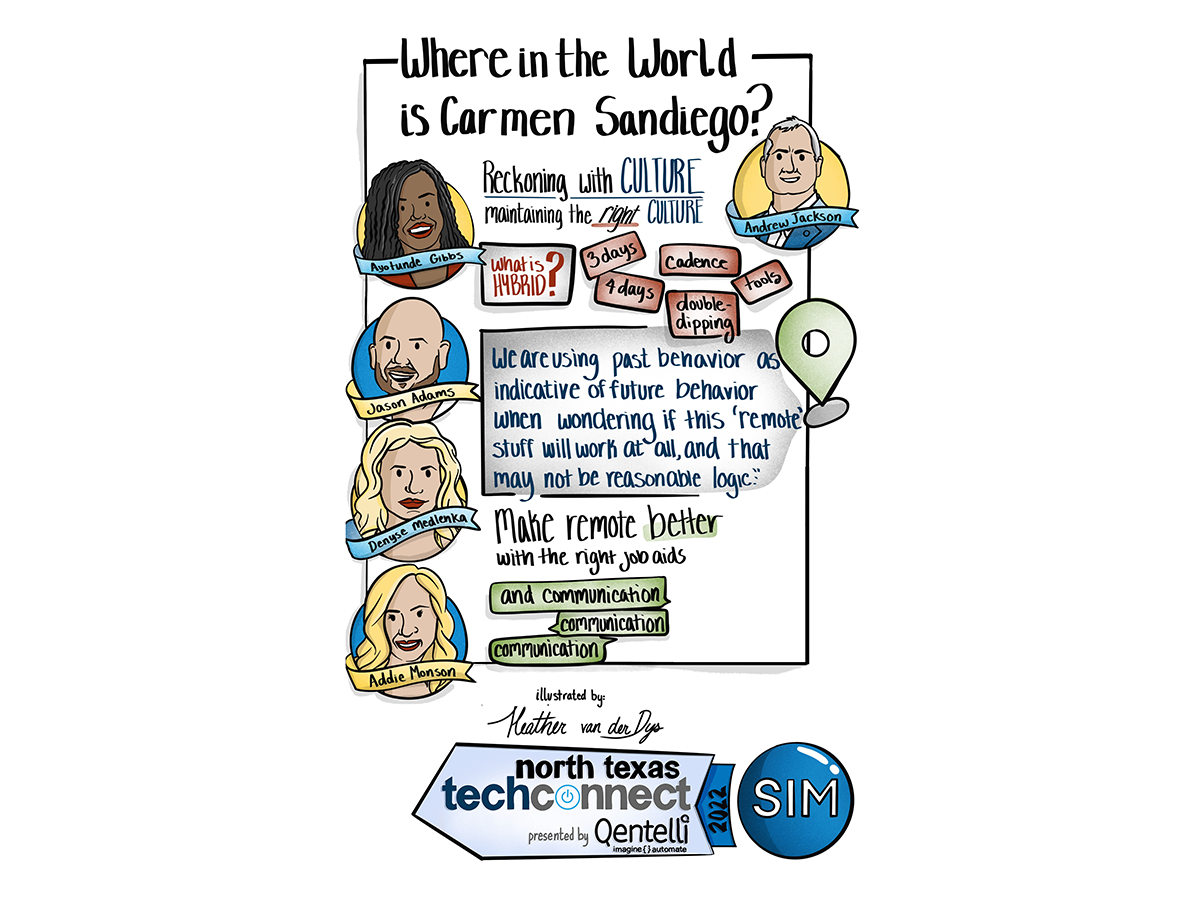 Where in the World
is Carmen Sandiego?
Reckoning with CULTURE
maintaining the right CULTURE
Ayotunde Gibbs
Andrew Jackson
What is
HYBRID?
3 days
4 days
cadence
double-
dipping
tools
Jason Adams
We are using past behavior as
indicative of future behavior
when wondering if this 'remote'
stuff will work at all, and that
may not be reasonable logic."
Denyse Medlenka
Make remote better
with the right job aids
and communication
communication
communication
Addie Monson
illustrated by:
Heather van der Dys
north texas
techconnect
presented by Qentelli
imagine { } automate
2022
SIM